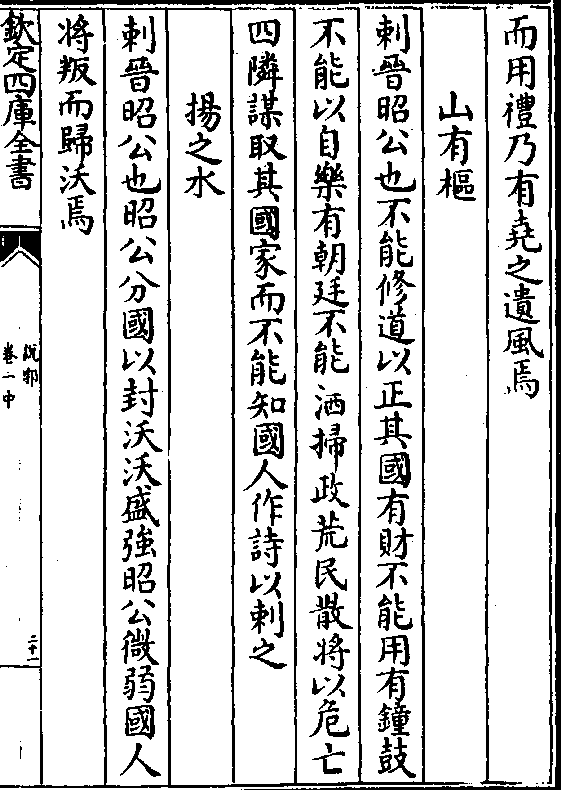 而用禮乃有堯之遺風焉
山有樞
刺晉昭公也不能修道以正其國有財不能用有鐘鼓
不能以自樂有朝廷不能洒掃政荒民散將以危亡
四隣謀取其國家而不能知國人作詩以刺之
揚之水
刺晉昭公也昭公分國以封沃沃盛強昭公微弱國人
將叛而歸沃焉
欽定四庫全書
說郛
卷一中
二十一